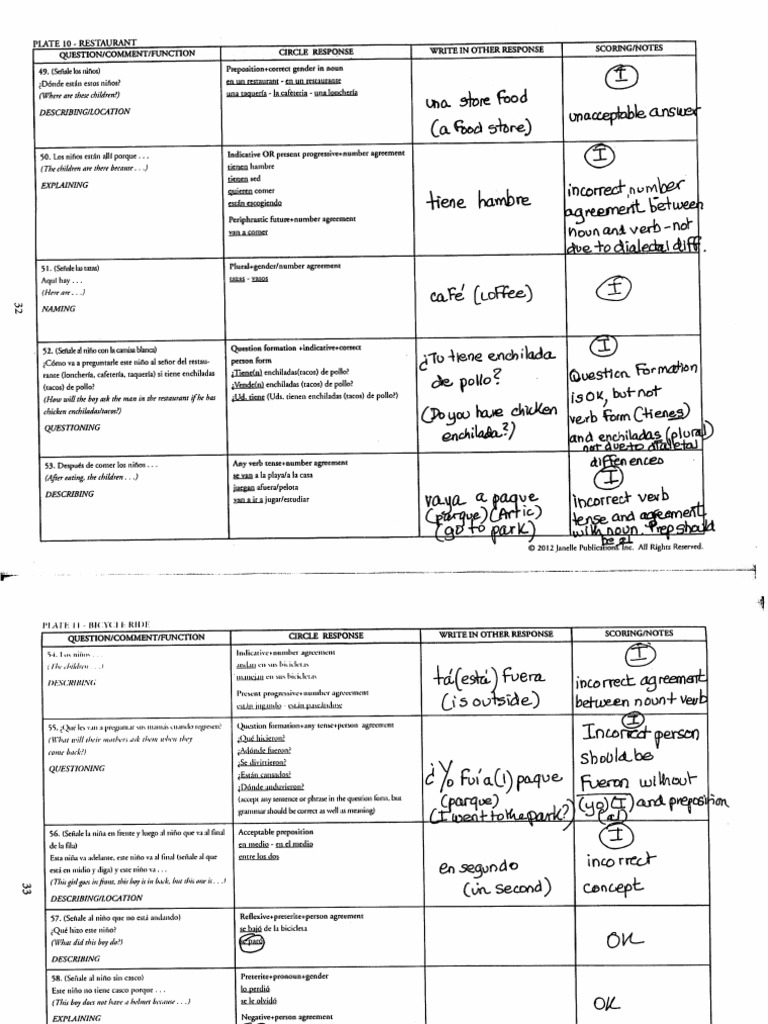 PLATE 10 - RESTAURANT
QUESTION/COMMENT/FUNCTION
CIRCLE RESPONSE
WRITE IN OTHER RESPONSE
SCORING/NOTES
49. (Señale los niños)
¿Dónde están estos niños?
(Where are these children?)
DESCRIBING/LOCATION
Preposition+correct gender in noun
en un restaurant - en un restaurante
una taquería - la cafetería - una lonchería
una store food
(a food store)
I
unacceptable answer
50. Los niños están allí porque . . .
(The children are there because . . .)
EXPLAINING
Indicative OR present progressive+number agreement
tienen hambre
tienen sed
quieren comer
están escogiendo
Periphrastic future+number agreement
van a comer
tiene hambre
I
incorrect number
agreement between
noun and verb - not
due to dialectal diff.
51. (Señale las tazas)
Aquí hay . . .
(Here are . . .)
NAMING
Plural+gender/number agreement
tazas - vasos
café (coffee)
I
32
52. (Señale al niño con la camisa blanca)
¿Cómo va a preguntarle este niño al señor del restau-
rante (lonchería, cafetería, taquería) si tiene enchiladas
(tacos) de pollo?
(How will the boy ask the man in the restaurant if he has
chicken enchiladas/tacos?)
QUESTIONING
Question formation +indicative+correct
person form
¿Tiene(n) enchiladas(tacos) de pollo?
¿Vende(n) enchiladas (tacos) de pollo?
¿Ud. tiene (Uds. tienen enchiladas (tacos) de pollo?)
¿Tu tiene enchilada
de pollo?
(Do you have chicken
enchilada?)
I
Question Formation
is OK, but not
verb form (tienes)
and enchiladas (plural)
not due to dialetal
differences
53. Después de comer los niños . . .
(After eating, the children . . .)
DESCRIBING
Any verb tense+number agreement
se van a la playa/a la casa
juegan afuera/pelota
van a ir a jugar/estudiar
vaya a paque
(parque) (Artic)
(go to park)
I
incorrect verb
tense and agreement
with noun. Prep should
be al
© 2012 Janelle Publications, Inc. All Rights Reserved.
PLATE 11 - BICYCLE RIDE
QUESTION/COMMENT/FUNCTION
CIRCLE RESPONSE
WRITE IN OTHER RESPONSE
SCORING/NOTES
54. Los niños . . .
(The children . . .)
DESCRIBING
Indicative+number agreement
andan en sus bicicletas
manejan en sus bicicletas
Present progressive+number agreement
están jugando - están paseándose
tá (está) fuera
(is outside)
I
incorrect agreement
between noun + verb
55. ¿Qué les van a preguntar sus mamás cuando regresen?
(What will their mothers ask them when they
come back?)
QUESTIONING
Question formation+any tense+person agreement
¿Qué hicieron?
¿Adónde fueron?
¿Se divirtieron?
¿Están cansados?
¿Dónde anduvieron?
(accept any sentence or phrase in the question form, but
grammar should be correct as well as meaning)
¿Yo fui a(l) paque
(parque)
(I went to the park?)
I
Incorrect person
should be
Fueron without
(yo) (I) and preposition
(al)
56. (Señale la niña en frente y luego al niño que va al final
de la fila)
Esta niña va adelante, este niño va al final (señale al que
está en midio y diga) y este niño va . . .
(This girl goes in front, this boy is in back, but this one is . . .)
DESCRIBING/LOCATION
Acceptable preposition
en medio - en el medio
entre los dos
en segundo
(in second)
I
incorrect
concept
33
57. (Señale al niño que no está andando)
¿Qué hizo este niño?
(What did this boy do?)
DESCRIBING
Reflexive+preterite+person agreement
se bajó de la bicicleta
se paró
OK
58. (Señale al niño sin casco)
Este niño no tiene casco porque . . .
(This boy does not have a helmet because . . .)
EXPLAINING
Preterite+pronoun+gender
lo perdió
se le olvidó
Negative+person agreement
OK